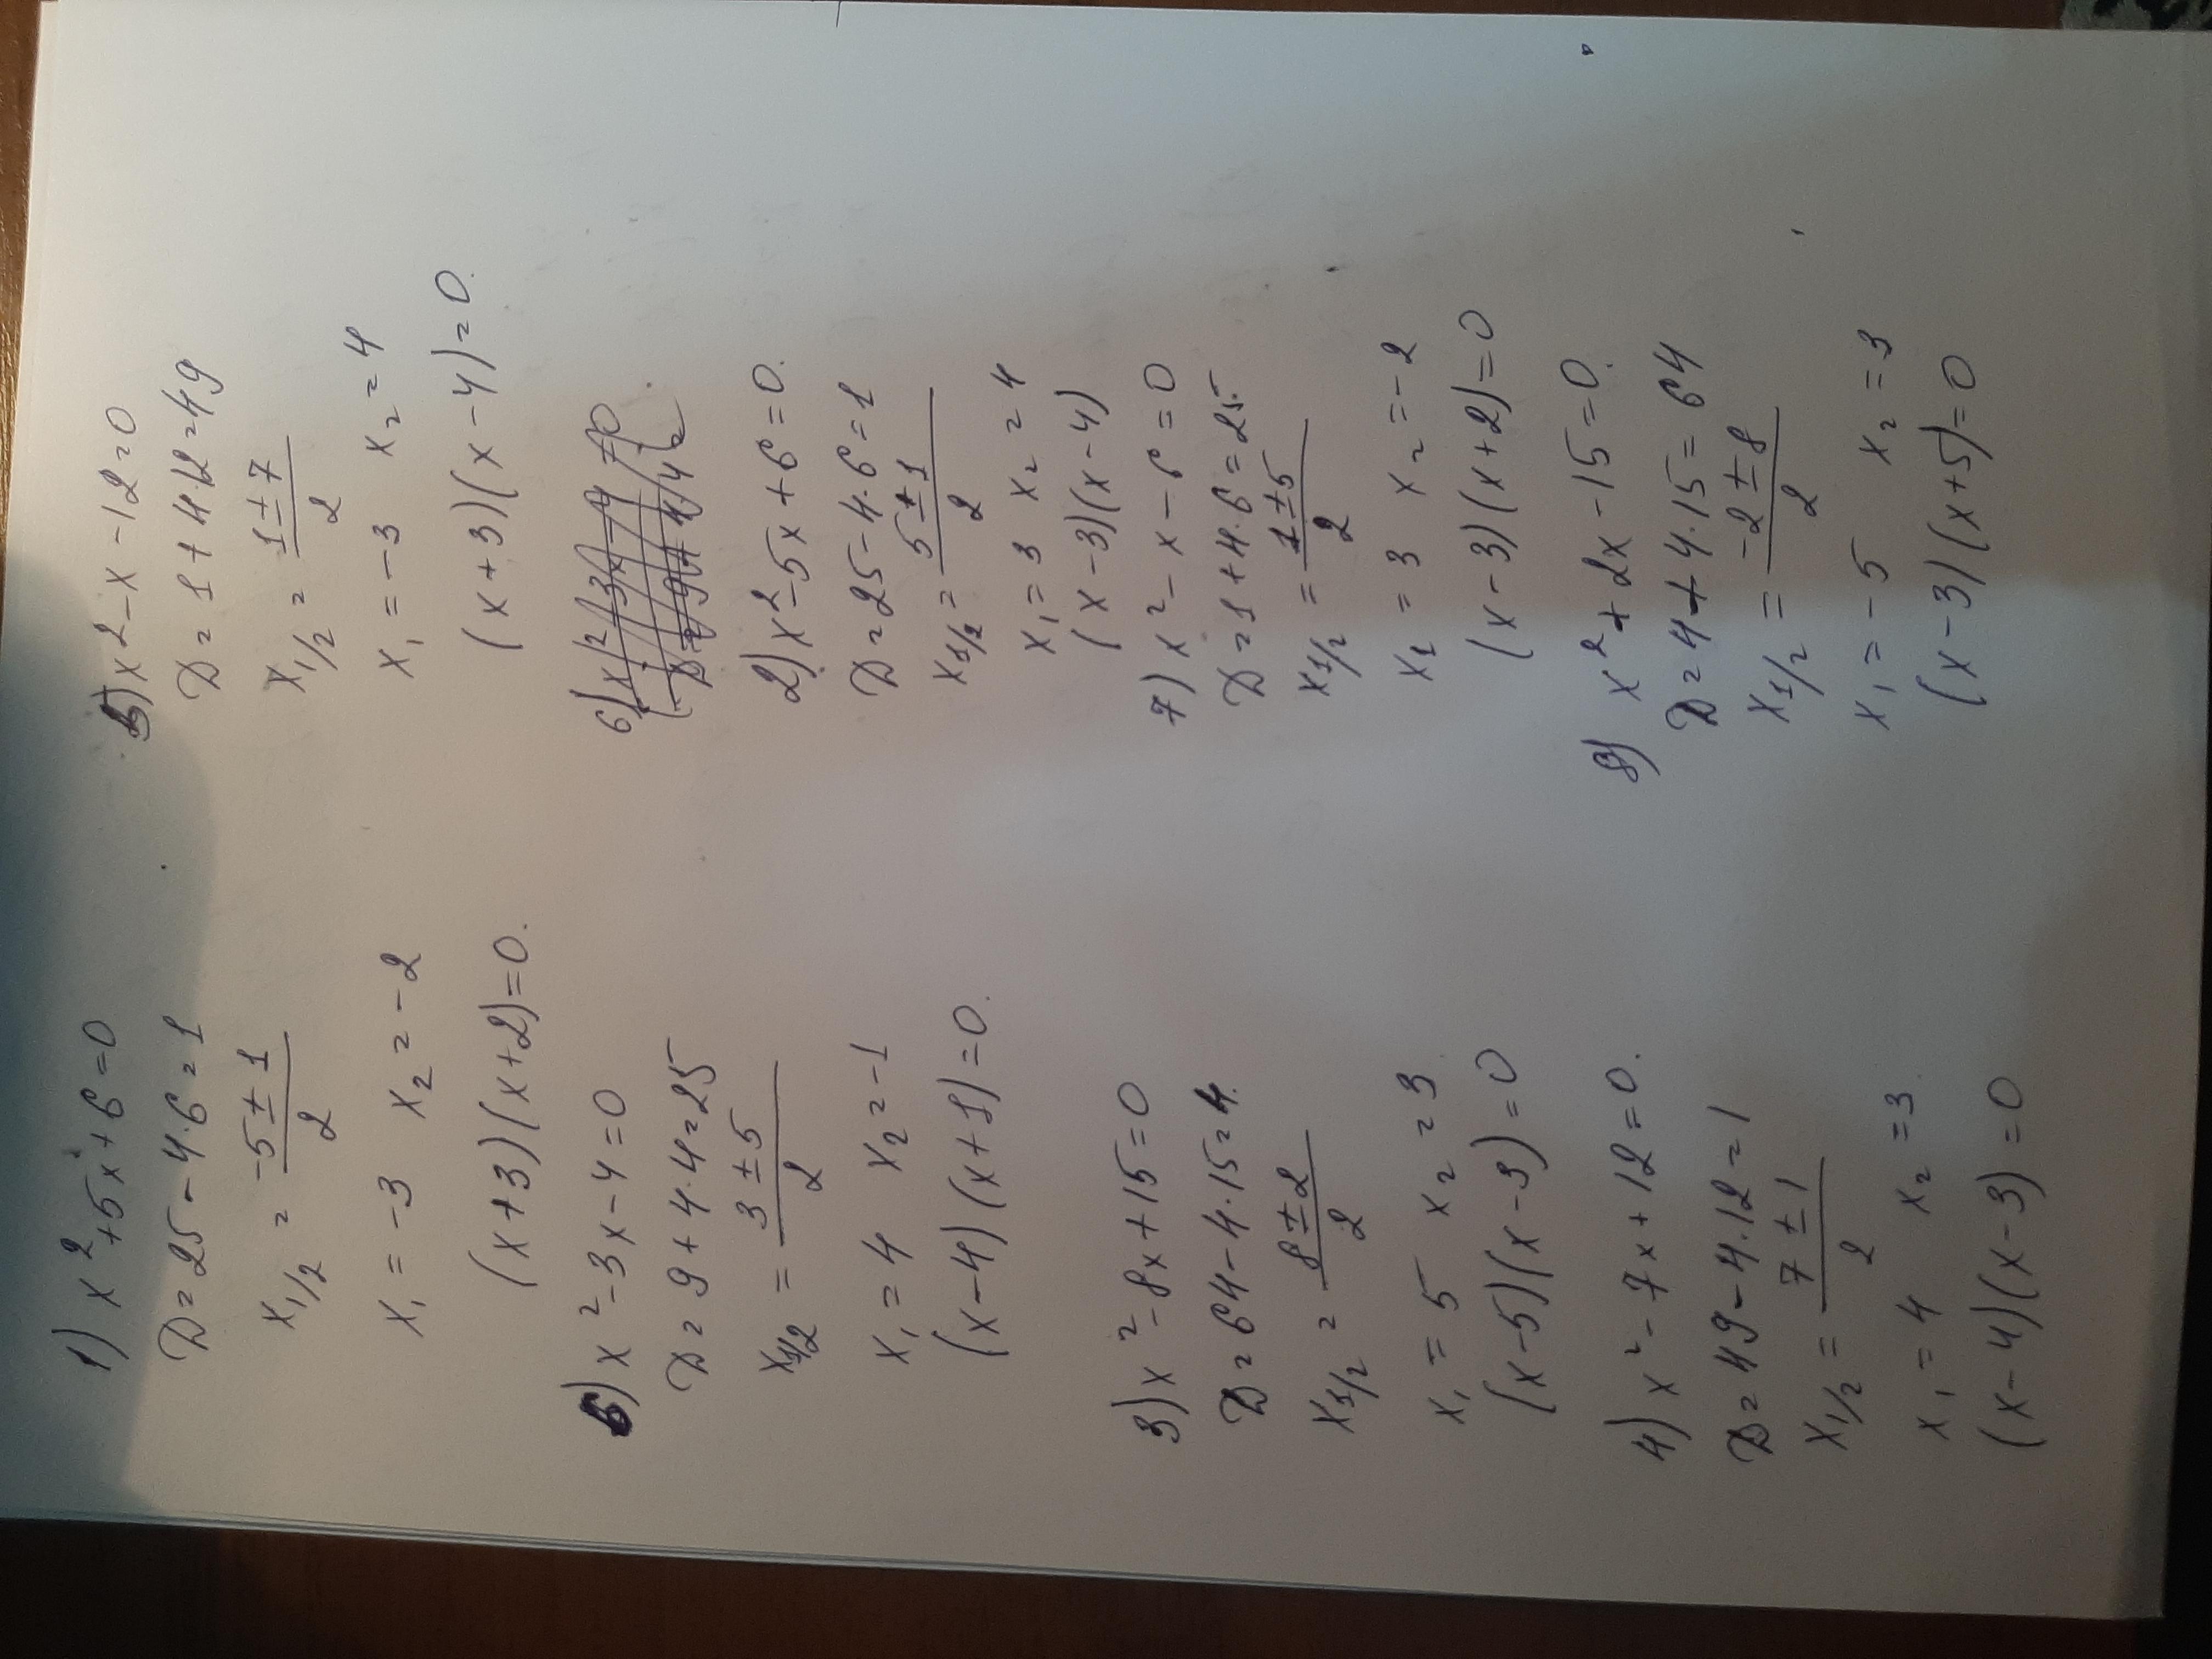 1) x² + 5x + 6 = 0
D = 25 - 4·6 = 1
x₁/₂ = (-5 ± 1)/2
x₁ = -3 x₂ = -2
(x+3)(x+2) = 0.
6) x² - 3x - 4 = 0
D = 9 + 4·4 = 25
x₁/₂ = (3 ± 5)/2
x₁ = 4 x₂ = -1
(x-4)(x+1) = 0.
3) x² - 8x + 15 = 0
D = 64 - 4·15 = 4.
x₁/₂ = (8 ± 2)/2
x₁ = 5 x₂ = 3
(x-5)(x-3) = 0
4) x² - 7x + 12 = 0.
D = 49 - 4·12 = 1
x₁/₂ = (7 ± 1)/2
x₁ = 4 x₂ = 3
(x-4)(x-3) = 0
5) x² - x - 12 = 0
D = 1 + 4·12 = 49
x₁/₂ = (1 ± 7)/2
x₁ = -3 x₂ = 4
(x+3)(x-4) = 0.
6)
2) x² - 5x + 6 = 0.
D = 25 - 4·6 = 1
x₁/₂ = (5 ± 1)/2
x₁ = 3 x₂ = 4
(x-3)(x-4)
7) x² - x - 6 = 0
D = 1 + 4·6 = 25.
x₁/₂ = (1 ± 5)/2
x₁ = 3 x₂ = -2
(x-3)(x+2) = 0
8) x² + 2x - 15 = 0.
D = 4 + 4·15 = 64
x₁/₂ = (-2 ± 8)/2
x₁ = -5 x₂ = 3
(x-3)(x+5) = 0